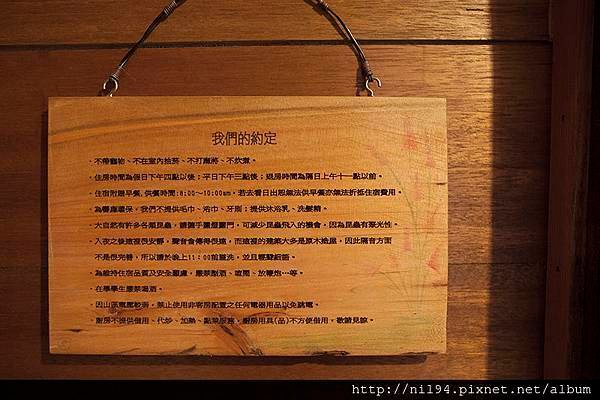 我們的約定
．不帶寵物、不在室內抽菸、不打麻將、不炊煮。
．住房時間為假日下午四點以後；平日下午三點後；退房時間為隔日上午十一點以前。
．住宿附贈早餐,供餐時間:8:00～10:00am。若去看日出恕無法供早餐亦無法折抵住宿費用。
．為響應環保，我們不提供毛巾、浴巾、牙刷；提供沐浴乳、洗髮精。
．大自然有許多各類昆蟲，請隨手關燈關門，可減少昆蟲飛入的機會，因為昆蟲有聚光性。
．入夜之後這裡很安靜，聲音會傳得很遠，而這裡的建築大多是原木搶屋，因此隔音方面
不是很完善，所以請於晚上11：00前盥洗，並且輕聲細語。
．為維持住宿品質及安全顧慮，嚴禁酗酒、喧鬧、放鞭炮…等。
．在學學生嚴禁喝酒。
．因山區電壓較弱，禁止使用非客房配置之任何電器用品以免跳電。
．廚房不提供借用、代炒、加熱、點菜服務，廚房用具(品)不方便借用，敬請見諒。
http://ni194.pixnet.net/album